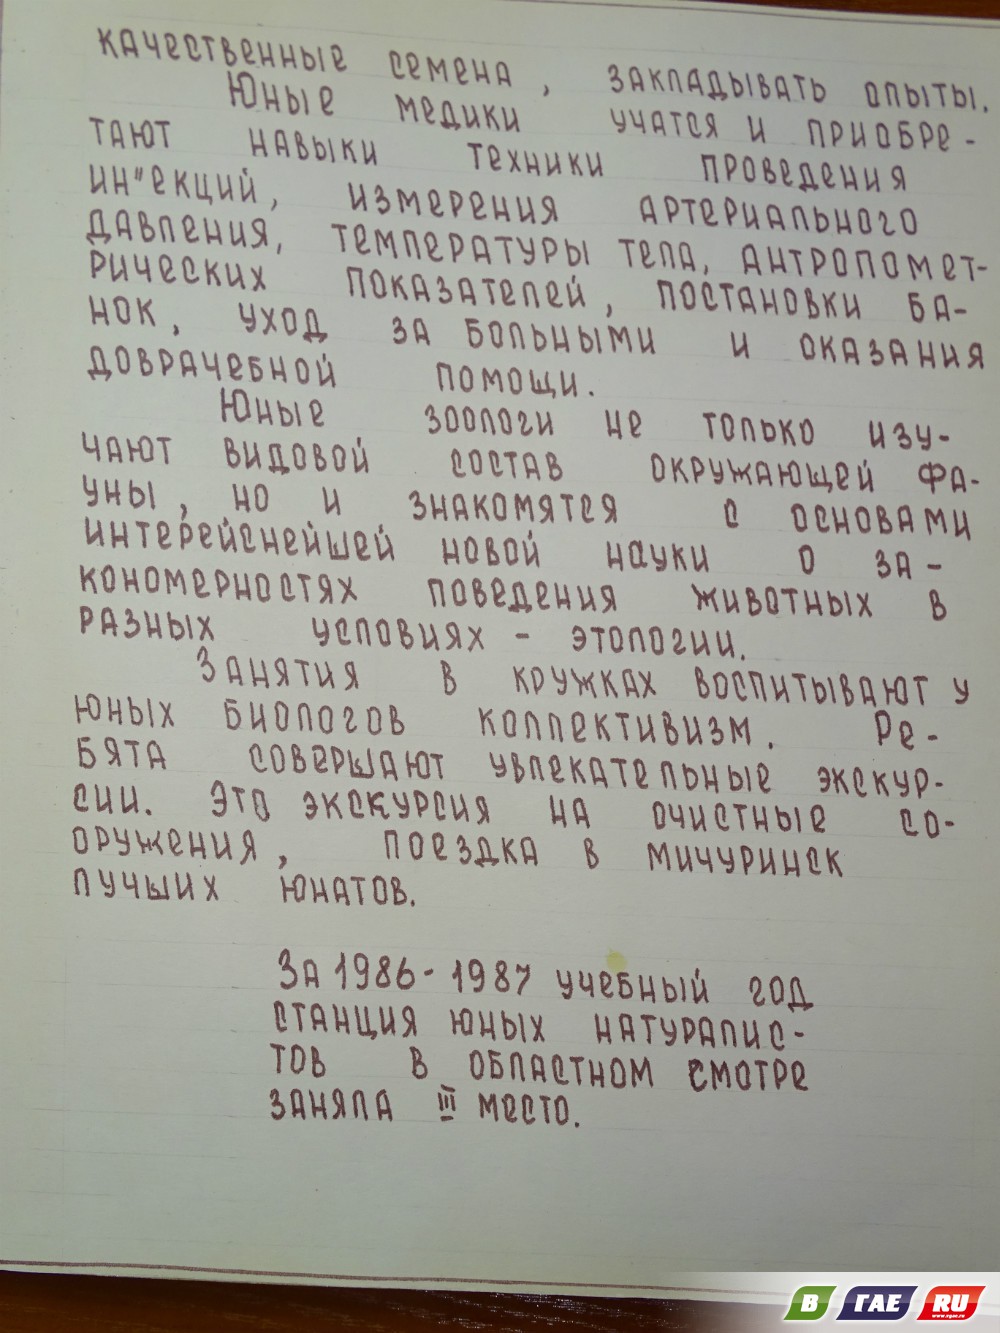 качественные семена, закладывать опыты.
Юные медики учатся и приобре-
тают навыки техники проведения
ин"екций, измерения артериального
давления, температуры тела, антропомет-
рических показателей, постановки ба-
нок, уход за больными и оказания
доврачебной помощи.
Юные зоологи не только изу-
чают видовой состав окружающей фа-
уны, но и знакомятся с основами
интерейснейшей новой науки о за-
кономерностях поведения животных в
разных условиях - этологии.
Занятия в кружках воспитывают у
юных биологов коллективизм. Ре-
бята совершают увлекательные экскур-
сии. Это экскурсия на очистные со-
оружения, поездка в Мичуринск
лучших юнатов.
За 1986-1987 учебный год
станция юных натуралис-
тов в областном смотре
заняла III место.
В ГАЕ RU
www.vgae.ru